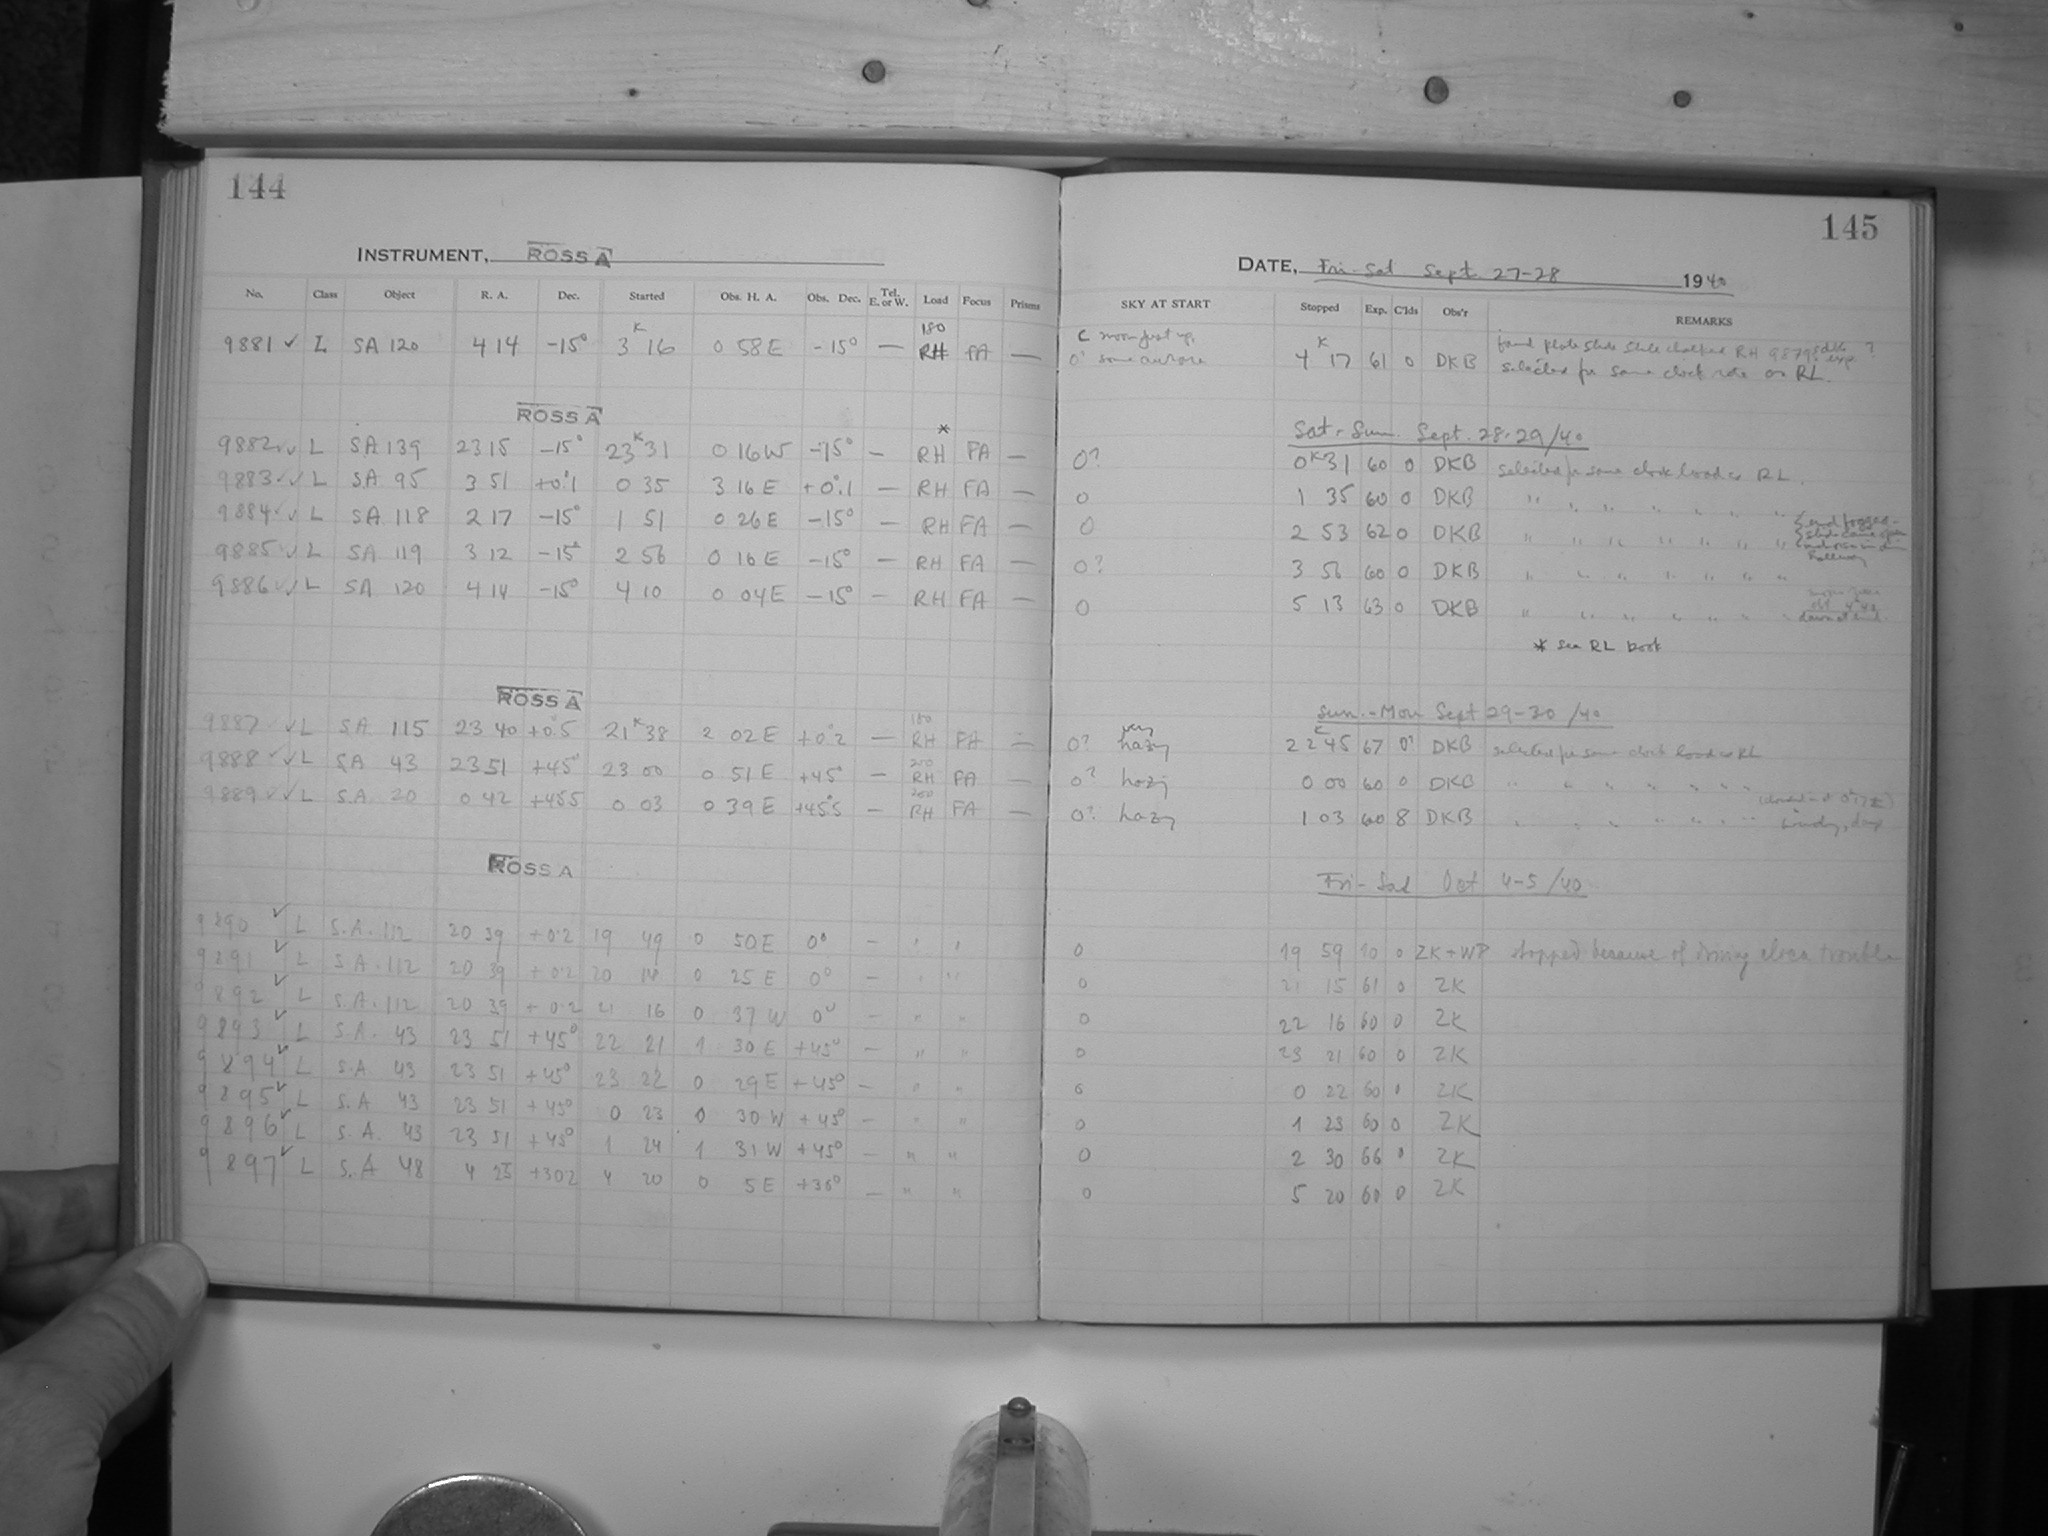 144
INSTRUMENT, ROSS A
No. Class Object R. A. Dec. Started Obs. H. A. Obs. Dec. Tel. E. or W. Load Focus Prisms
9881 ✓ L SA 120 4 14 -15° 3 K 16 0 58 E -15° — 180 RH FA —
ROSS A
9882 ✓✓ L SA 139 23 15 -15° 23 K 31 0 16 W -15° — * RH FA —
9883 ✓✓ L SA 95 3 51 +0°.1 0 35 3 16 E +0°.1 — RH FA —
9884 ✓✓ L SA 118 2 17 -15° 1 51 0 26 E -15° — RH FA —
9885 ✓✓ L SA 119 3 12 -15° 2 56 0 16 E -15° — RH FA —
9886 ✓✓ L SA 120 4 14 -15° 4 10 0 04 E -15° — RH FA —
ROSS A
9887 ✓✓ L SA 115 23 40 +0°.5 21 K 38 2 02 E +0°.2 — 180 RH FA —
9888 ✓✓ L SA 43 23 51 +45° 23 00 0 51 E +45° — 200 RH FA —
9889 ✓✓ L SA 20 0 42 +45.5 0 03 0 39 E +45°.5 — 200 RH FA —
ROSS A
9890 ✓ L S.A. 112 20 39 +0.2 19 49 0 50 E 0° — " "
9891 ✓ L S.A. 112 20 39 +0.2 20 14 0 25 E 0° — " "
9892 ✓ L S.A. 112 20 39 +0.2 21 16 0 37 W 0° — " "
9893 ✓ L S.A. 43 23 51 +45° 22 21 1 30 E +45° — " "
9894 ✓ L S.A. 43 23 51 +45° 23 22 0 29 E +45° — " "
9895 ✓ L S.A 43 23 51 +45° 0 23 0 30 W +45° — " "
9896 ✓ L S.A. 43 23 51 +45° 1 24 1 31 W +45° — " "
9897 ✓ L S.A 48 4 25 +30.2 4 20 0 5 E +30° — " "
145
DATE, Fri-Sat Sept. 27-28 1940
SKY AT START Stopped Exp. C'lds Obs'r REMARKS
moon just up
0? some aurora 4 K 17 61 0 DKB selected for same clock rate as RL.
Sat-Sun. Sept. 28-29/40
0? 0 K 31 60 0 DKB selected for same clock load as RL.
0 1 35 60 0 DKB " " " " " " "
0 2 53 62 0 DKB " " " " " " " end fogged - slide came open
0? 3 56 60 0 DKB " " " " " " "
0 5 13 63 0 DKB " " " " " " " dawn at end
* see RL book
Sun.-Mon Sept 29-30/40
0? very hazy 22 K 45 67 0? DKB selected for same clock load as RL
0? hazy 0 00 60 0 DKB " " " " " " "
0? hazy 1 03 60 8 DKB " " " " " " "
Fri-Sat Oct 4-5/40
0 19 59 10 0 ZK+WP stopped because of driving clock trouble
0 21 15 61 0 ZK
0 22 16 60 0 ZK
0 23 21 60 0 ZK
0 0 22 60 0 ZK
0 1 23 60 0 ZK
0 2 30 66 0 ZK
0 5 20 60 0 ZK